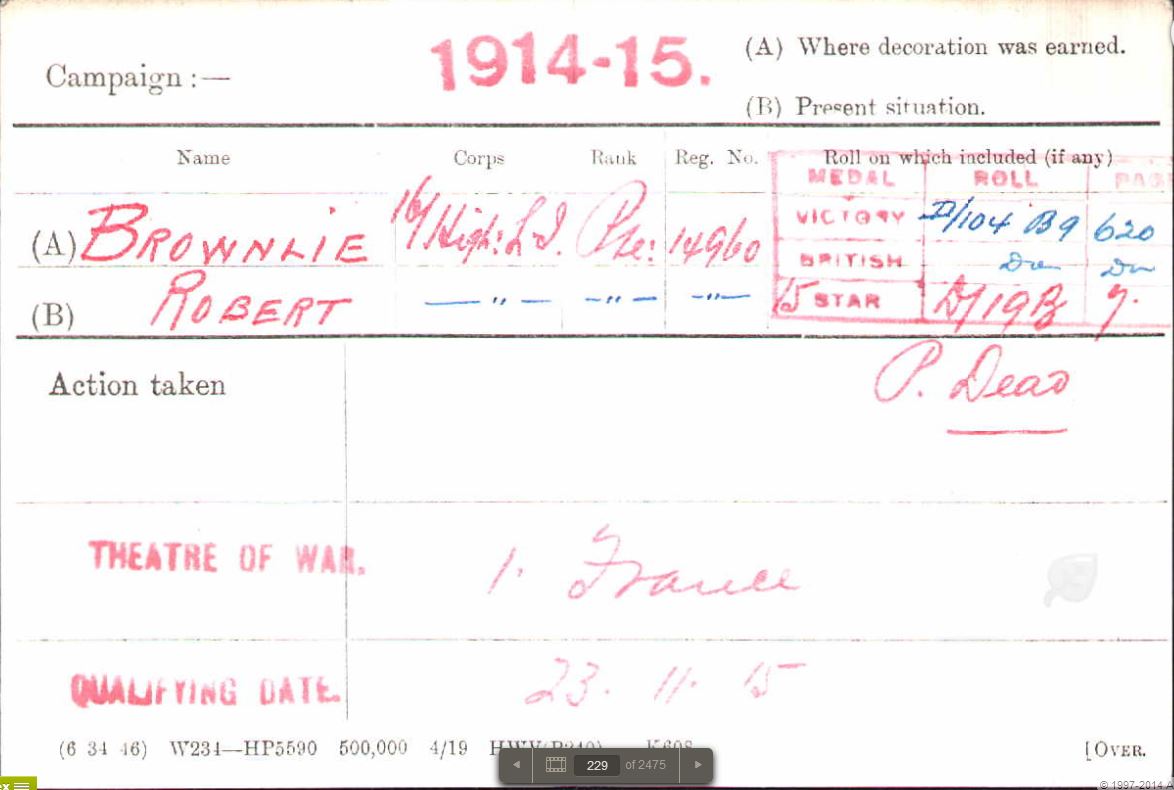 Campaign :— 1914-15. (A) Where decoration was earned.
(B) Present situation.
Name Corps Rank Reg. No. Roll on which included (if any)
MEDAL ROLL PAGE
(A) BROWNLIE 16/High: L.I. Pte: 14960 VICTORY D/104 B9 620
BRITISH Do Do
(B) ROBERT — " — — " — — " — 15 STAR D/19B 7.
Action taken P. Dead
THEATRE OF WAR. 1. France
QUALIFYING DATE. 23. 11. 15
(6 34 46) W234—HP5590 500,000 4/19 HWV(P240) K608 [OVER.
229 of 2475
© 1997-2014 A